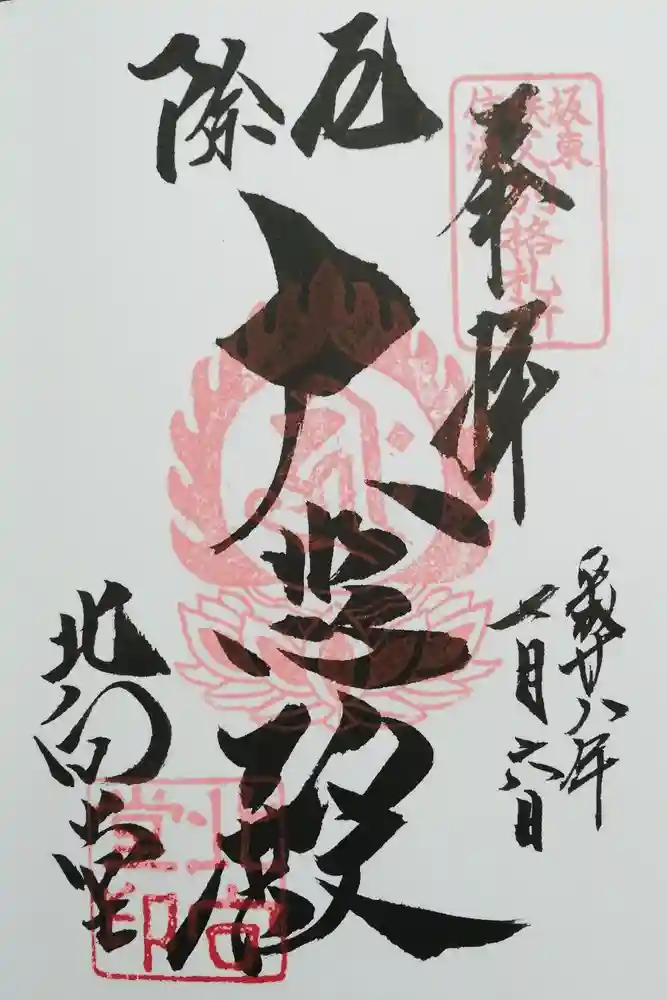 坂東
秩父
信濃
別格札所
奉拝
平成廿八年
七月六日
厄除
大悲殿
北向堂
北向
堂印